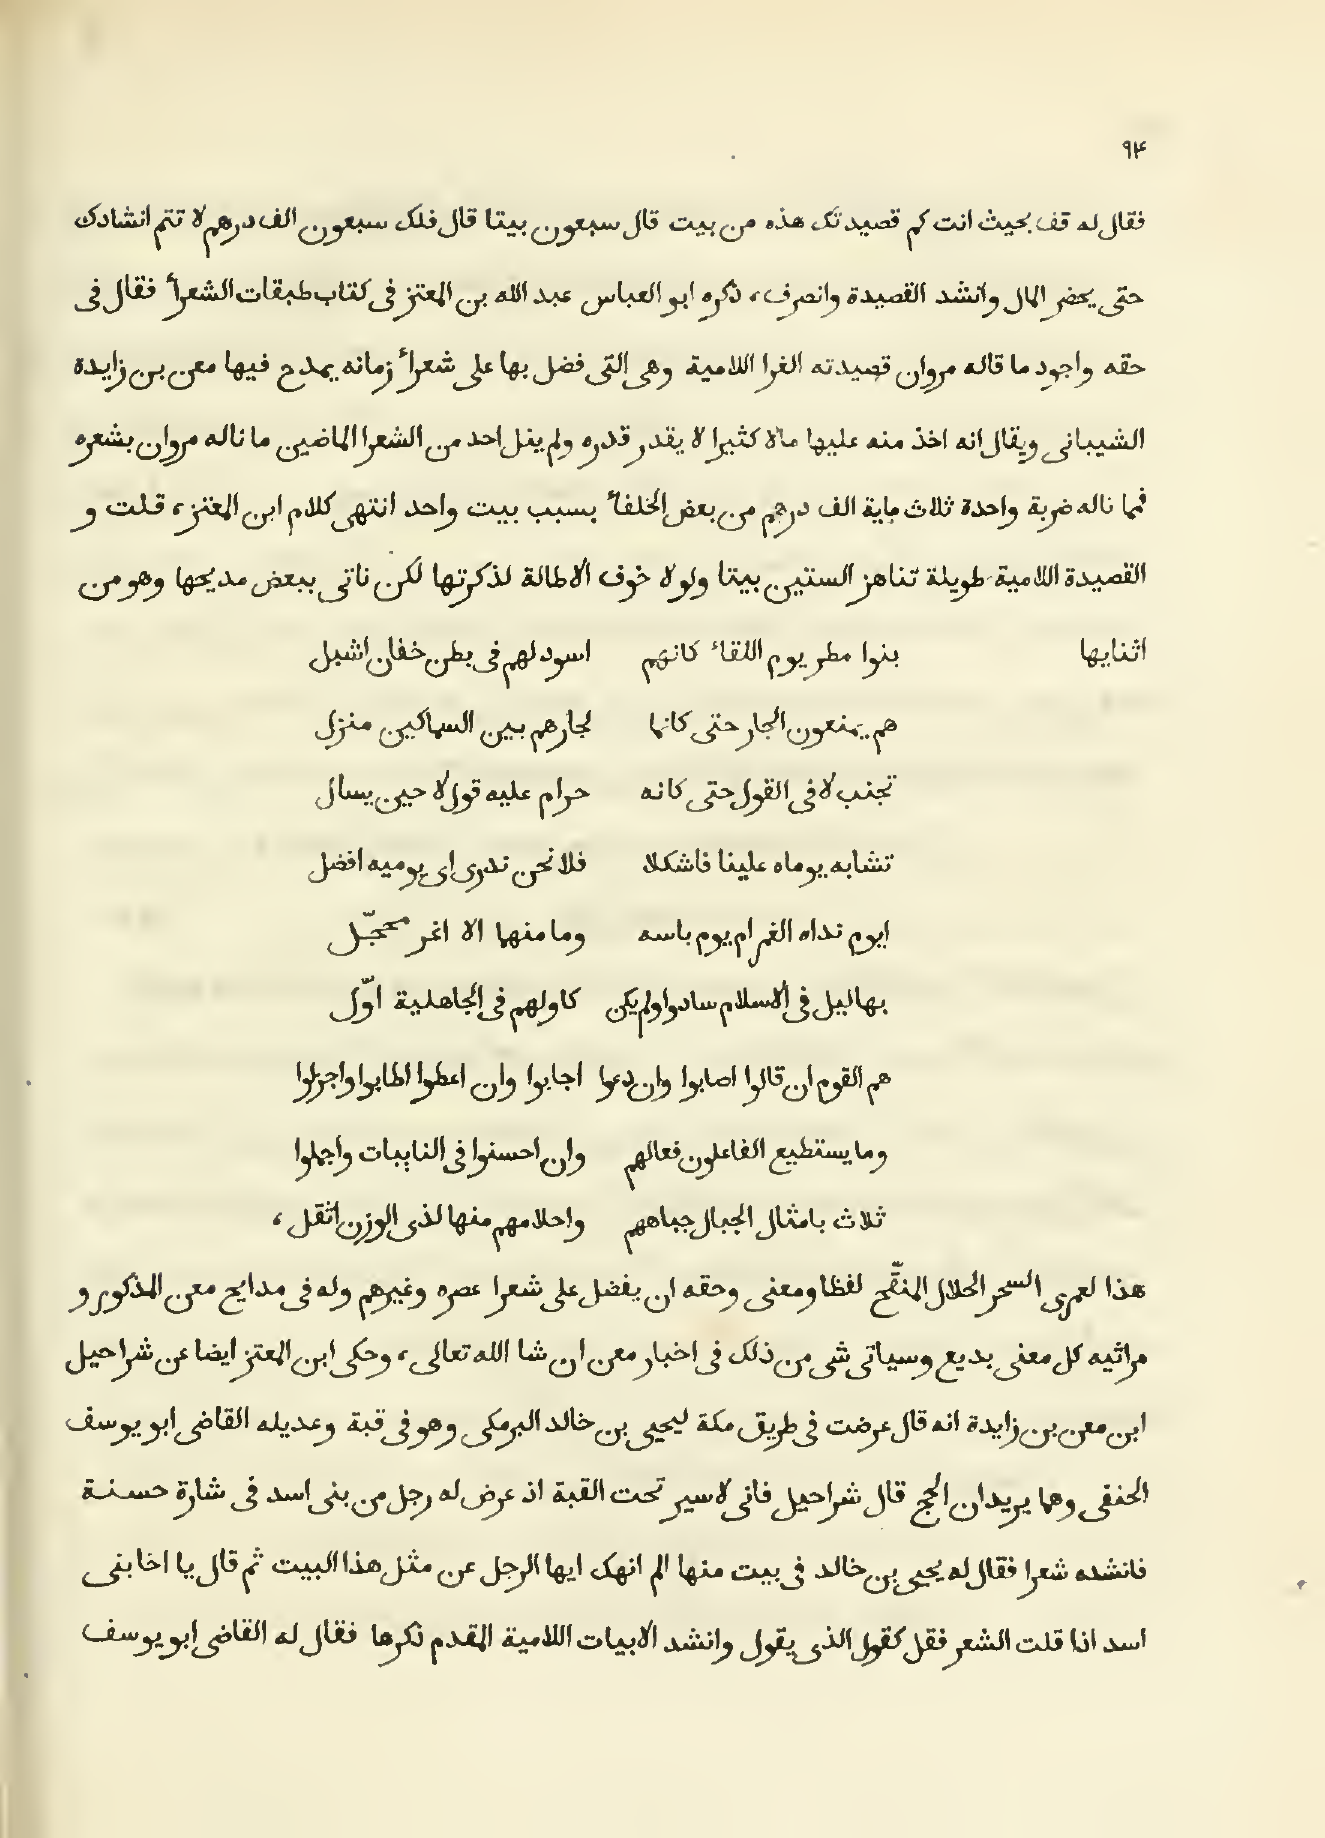 ٩٤
فقال له قف بحيث انت كم قصيدتك هذه من بيت قال سبعون بيتا قال فلك سبعون الف درهم لا تتم انشادك
حتى يحضر المال وانشد القصيدة وانصرف، ذكره ابو العباس عبد الله بن المعتز فى كتاب طبقات الشعرأ فقال فى
حقه واجود ما قاله مروان قصيدته الغرا اللامية وهى التى فضل بها على شعرأ زمانه يمدح فيها معن بن زايدة
الشيبانى ويقال انه اخذ منه عليها مالا كثيرا لا يقدر قدره ولم ينل احد من الشعرا الماضين ما ناله مروان بشعره
فما ناله ضربة واحدة ثلاث ماية الف درهم من بعض الخلفأ بسبب بيت واحد انتهى كلام ابن المعتز، قلت و
القصيدة اللامية طويلة تناهز الستين بيتا ولولا خوف الاطالة لذكرتها لكن ناتى ببعض مديحها وهو من
اثنايها بنوا مطر يوم اللقاء كانهم اسود لهم فى بطن خفان اشبل
هم يمنعون الجار حتى كانما لجارهم بين السماكين منزل
تجنب لا فى القول حتى كانه حرام عليه قول لا حين يسال
تشابه يوماه علينا فاشكلا فلا نحن ندرى اى يوميه افضل
ايوم نداه الغمر ام يوم باسه وما منهما الا اغر محجّل
بهاليل فى الاسلام سادوا ولم يكن كاولهم فى الجاهلية اوّل
هم القوم ان قالوا اصابوا وان دعوا اجابوا وان اعطوا اطابوا واجزلوا
وما يستطيع الفاعلون فعالهم وان احسنوا فى النايبات واجملوا
ثلاث بامثال الجبال جباههم واحلامهم منها لذى الوزن اثقل،
هذا لعمرى السحر الحلال المنقّح لفظا ومعنى وحقه ان يفضل على شعرا عصره وغيرهم وله فى مدايح معن المذكور و
مراثيه كل معنى بديع وسياتى شى من ذلك فى اخبار معن ان شا الله تعالى، وحكى ابن المعتز ايضا عن شراحيل
ابن معن بن زايدة انه قال عرضت فى طريق مكة ليحيى بن خالد البرمكى وهو فى قبة وعديله القاضى ابو يوسف
الحنفى وهما يريدان الحج قال شراحيل فانى لاسير تحت القبة اذ عرض له رجل من بنى اسد فى شارة حسنة
فانشده شعرا فقال له يحيى بن خالد فى بيت منها الم انهك ايها الرجل عن مثل هذا البيت ثم قال يا اخا بنى
اسد اذا قلت الشعر فقل كقول الذى يقول وانشد الابيات اللامية المقدم ذكرها فقال له القاضى ابو يوسف